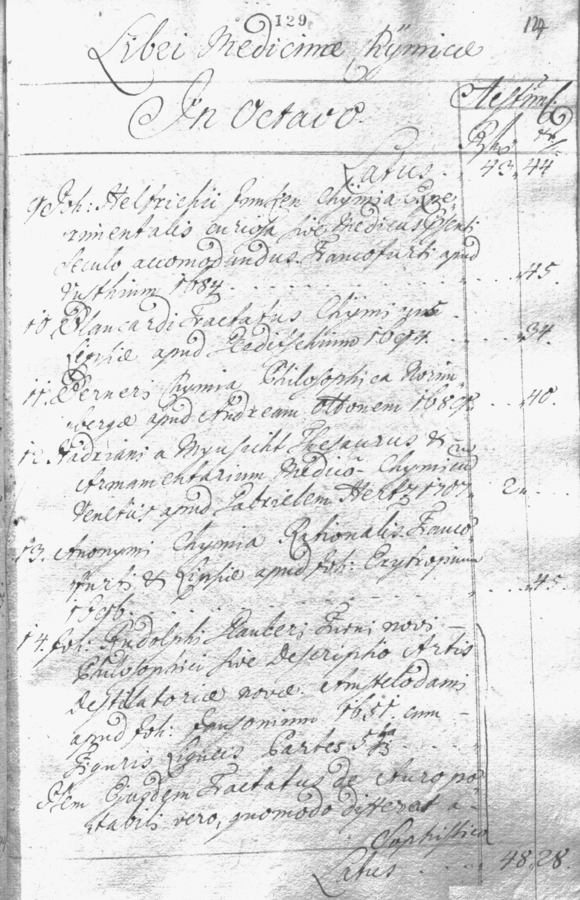 129
124
Libri Medicinæ Kÿmicæ
In Octavo.
Aestim:
Rfl. xr
Latus . 43. 44
9. Joh: Helfrichii Jungken Chymia Expe-
rimentalis curiosa sive Medicus
seculo accomodandus. Francofurti apud
1684. . . . . . . . . 45.
10. Blancardi Tractatus Chymicus.
Lipsiæ apud 1694. . . . . 34.
11. Berneri Chymia Philosophica Norim-
bergæ apud Andream Ottonem . . . 40.
12. Hadriani a Mynsicht Thesaurus &
Armamentarium Medico-Chymicum
Venetiis apud Gabrielem Hertz 1707. 2. . .
13. Anonymi Chymia Rationalis. Franco-
furti & Lipsiæ apud Joh:
. . . . 45.
14. Joh: Rudolphi Glauberi Furni novi
Philosophici sive Descriptio Artis
destillatoriæ novæ. Amstelodami
apud Joh: Jansonium 1651. cum
Figuris Ligneis Partes 5. . . .
Item Ejusdem Tractatus de Auro po-
tabili vero, quomodo differat a
Sophistico
Latus . . . . 48. 28.